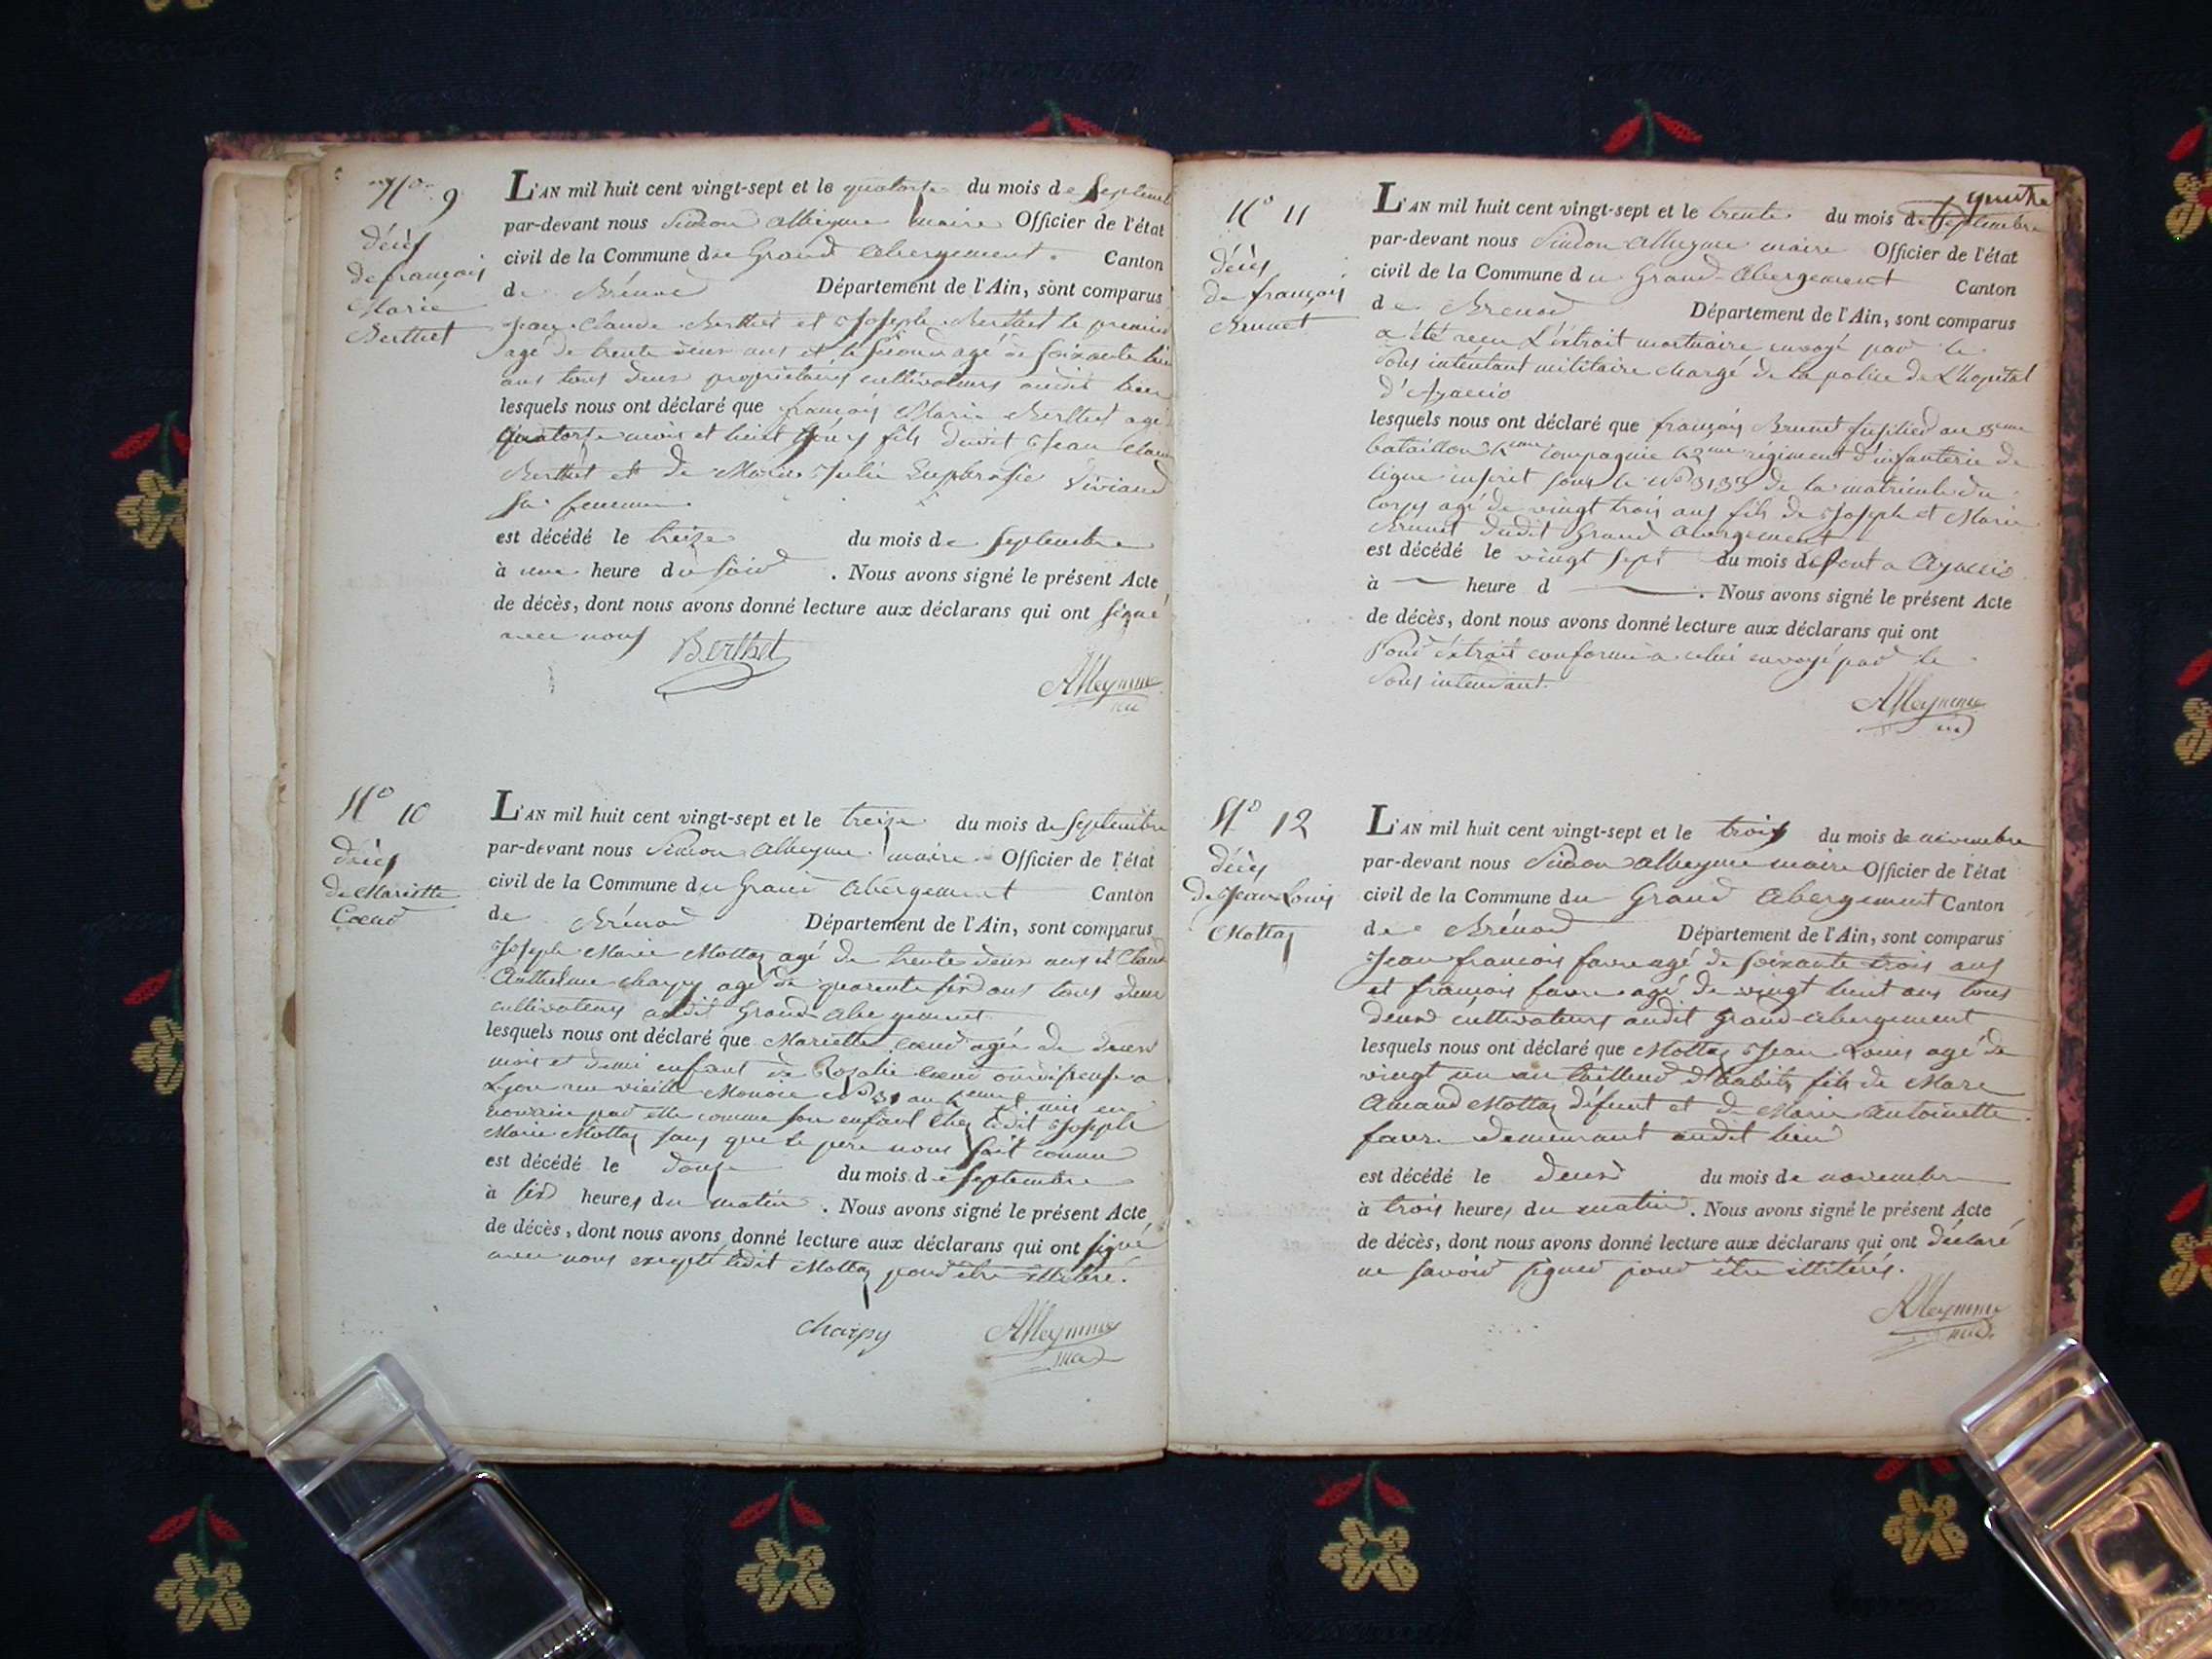 N° 9
décès
de françois
Marie
Berthet
L'AN mil huit cent vingt-sept et le quatorze du mois de Septembre
par-devant nous Simon Alleyme maire Officier de l'état
civil de la Commune du Grand Abergement Canton
de Brénod Département de l'Ain, sont comparus
Jean Claude Berthet et Joseph Berthet le premier
agé de trente deux ans et le second agé de soixante
ans tous deux propriétaires cultivateurs audit lieu
lesquels nous ont déclaré que françois Marie Berthet agé
quatorze mois et huit jours fils dudit Jean Claude
Berthet et de Marie Julie Euphrosie Viviand
sa femme
est décédé le treize du mois de septembre
à une heure du soir . Nous avons signé le présent Acte
de décès, dont nous avons donné lecture aux déclarans qui ont signé
avec nous
Berthet
Alleymme
N° 10
décès
de Mariette
Cœur
L'AN mil huit cent vingt-sept et le treize du mois de septembre
par-devant nous Simon Alleyme maire Officier de l'état
civil de la Commune du Grand Abergement Canton
de Brénod Département de l'Ain, sont comparus
Joseph Marie Mottaz agé de trente deux ans et Claude
Anthelme charpy agé de quarente six ans tous deux
cultivateurs audit Grand Abergement
lesquels nous ont déclaré que Mariette Cœur agée de deux
mois et demi enfant de Rosalie Cœur ourdisseuse a
Lyon rue vieille Monoie N° 31 au mis en
par elle comme son enfant chez ledit Joseph
Marie Mottaz sans que le père nous soit connu
est décédé le douze du mois de septembre
à six heures du matin . Nous avons signé le présent Acte
de décès, dont nous avons donné lecture aux déclarans qui ont signé
avec nous excepté ledit Mottaz pour être illitéré.
charpy
Alleymme
N° 11
décès
de françois
Brunet
L'AN mil huit cent vingt-sept et le trente du mois de septembre
par-devant nous Simon Alleyme maire Officier de l'état
civil de la Commune du Grand-Abergement Canton
de Brenod Département de l'Ain, sont comparus
a été reçu L'extrait mortuaire envoyé par le
Sous intentant militaire chargé de la police de L'hopital
d'Ajaccio
lesquels nous ont déclaré que françois Brunet fusilier au 3eme
bataillon compagnie régiment d'infanterie de
ligne inscrit sous le N° de la matricule du
corps agé de vingt trois ans fils de Joseph et Marie
Brunet dudit Grand Abergement
est décédé le vingt sept du mois de a Ajaccio
à heure d . Nous avons signé le présent Acte
de décès, dont nous avons donné lecture aux déclarans qui ont
Pour extrait conforme a celui envoyé par le
Sous intendant.
Alleymme
N° 12
décès
de Jean Louis
Mottaz
L'AN mil huit cent vingt-sept et le trois du mois de novembre
par-devant nous Simon Alleyme maire Officier de l'état
civil de la Commune du Grand Abergement Canton
de Brénod Département de l'Ain, sont comparus
Jean francois favre agé de soixante trois ans
et francois favre agé de vingt huit ans tous
deux cultivateurs audit Grand-abergement
lesquels nous ont déclaré que Mottaz Jean Louis agé de
vingt un an tailleur d'habits fils de Marc
Amand Mottaz défunt et de Marie Antoinette
favre demeurant audit lieu
est décédé le deux du mois de novembre
à trois heures du matin . Nous avons signé le présent Acte
de décès, dont nous avons donné lecture aux déclarans qui ont déclaré
ne savoir signer pour être illitérés.
Alleymme